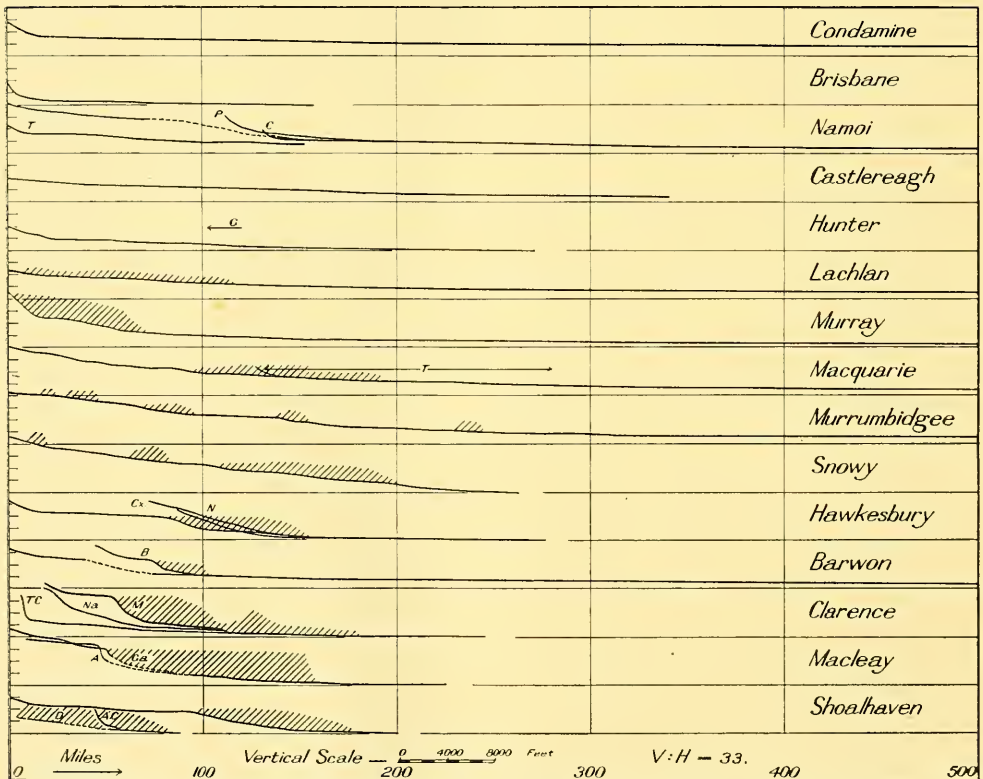 Condamine
Brisbane
P
C
T
Namoi
Castlereagh
G
Hunter
Lachlan
Murray
T
Macquarie
Murrumbidgee
Snowy
Cx
N
Hawkesbury
B
Barwon
TC
Na
M
Clarence
A
Ca
Macleay
Shoalhaven
AC
Miles
Vertical Scale
0 4000 8000 Feet
V:H = 33.
0 100 200 300 400 500